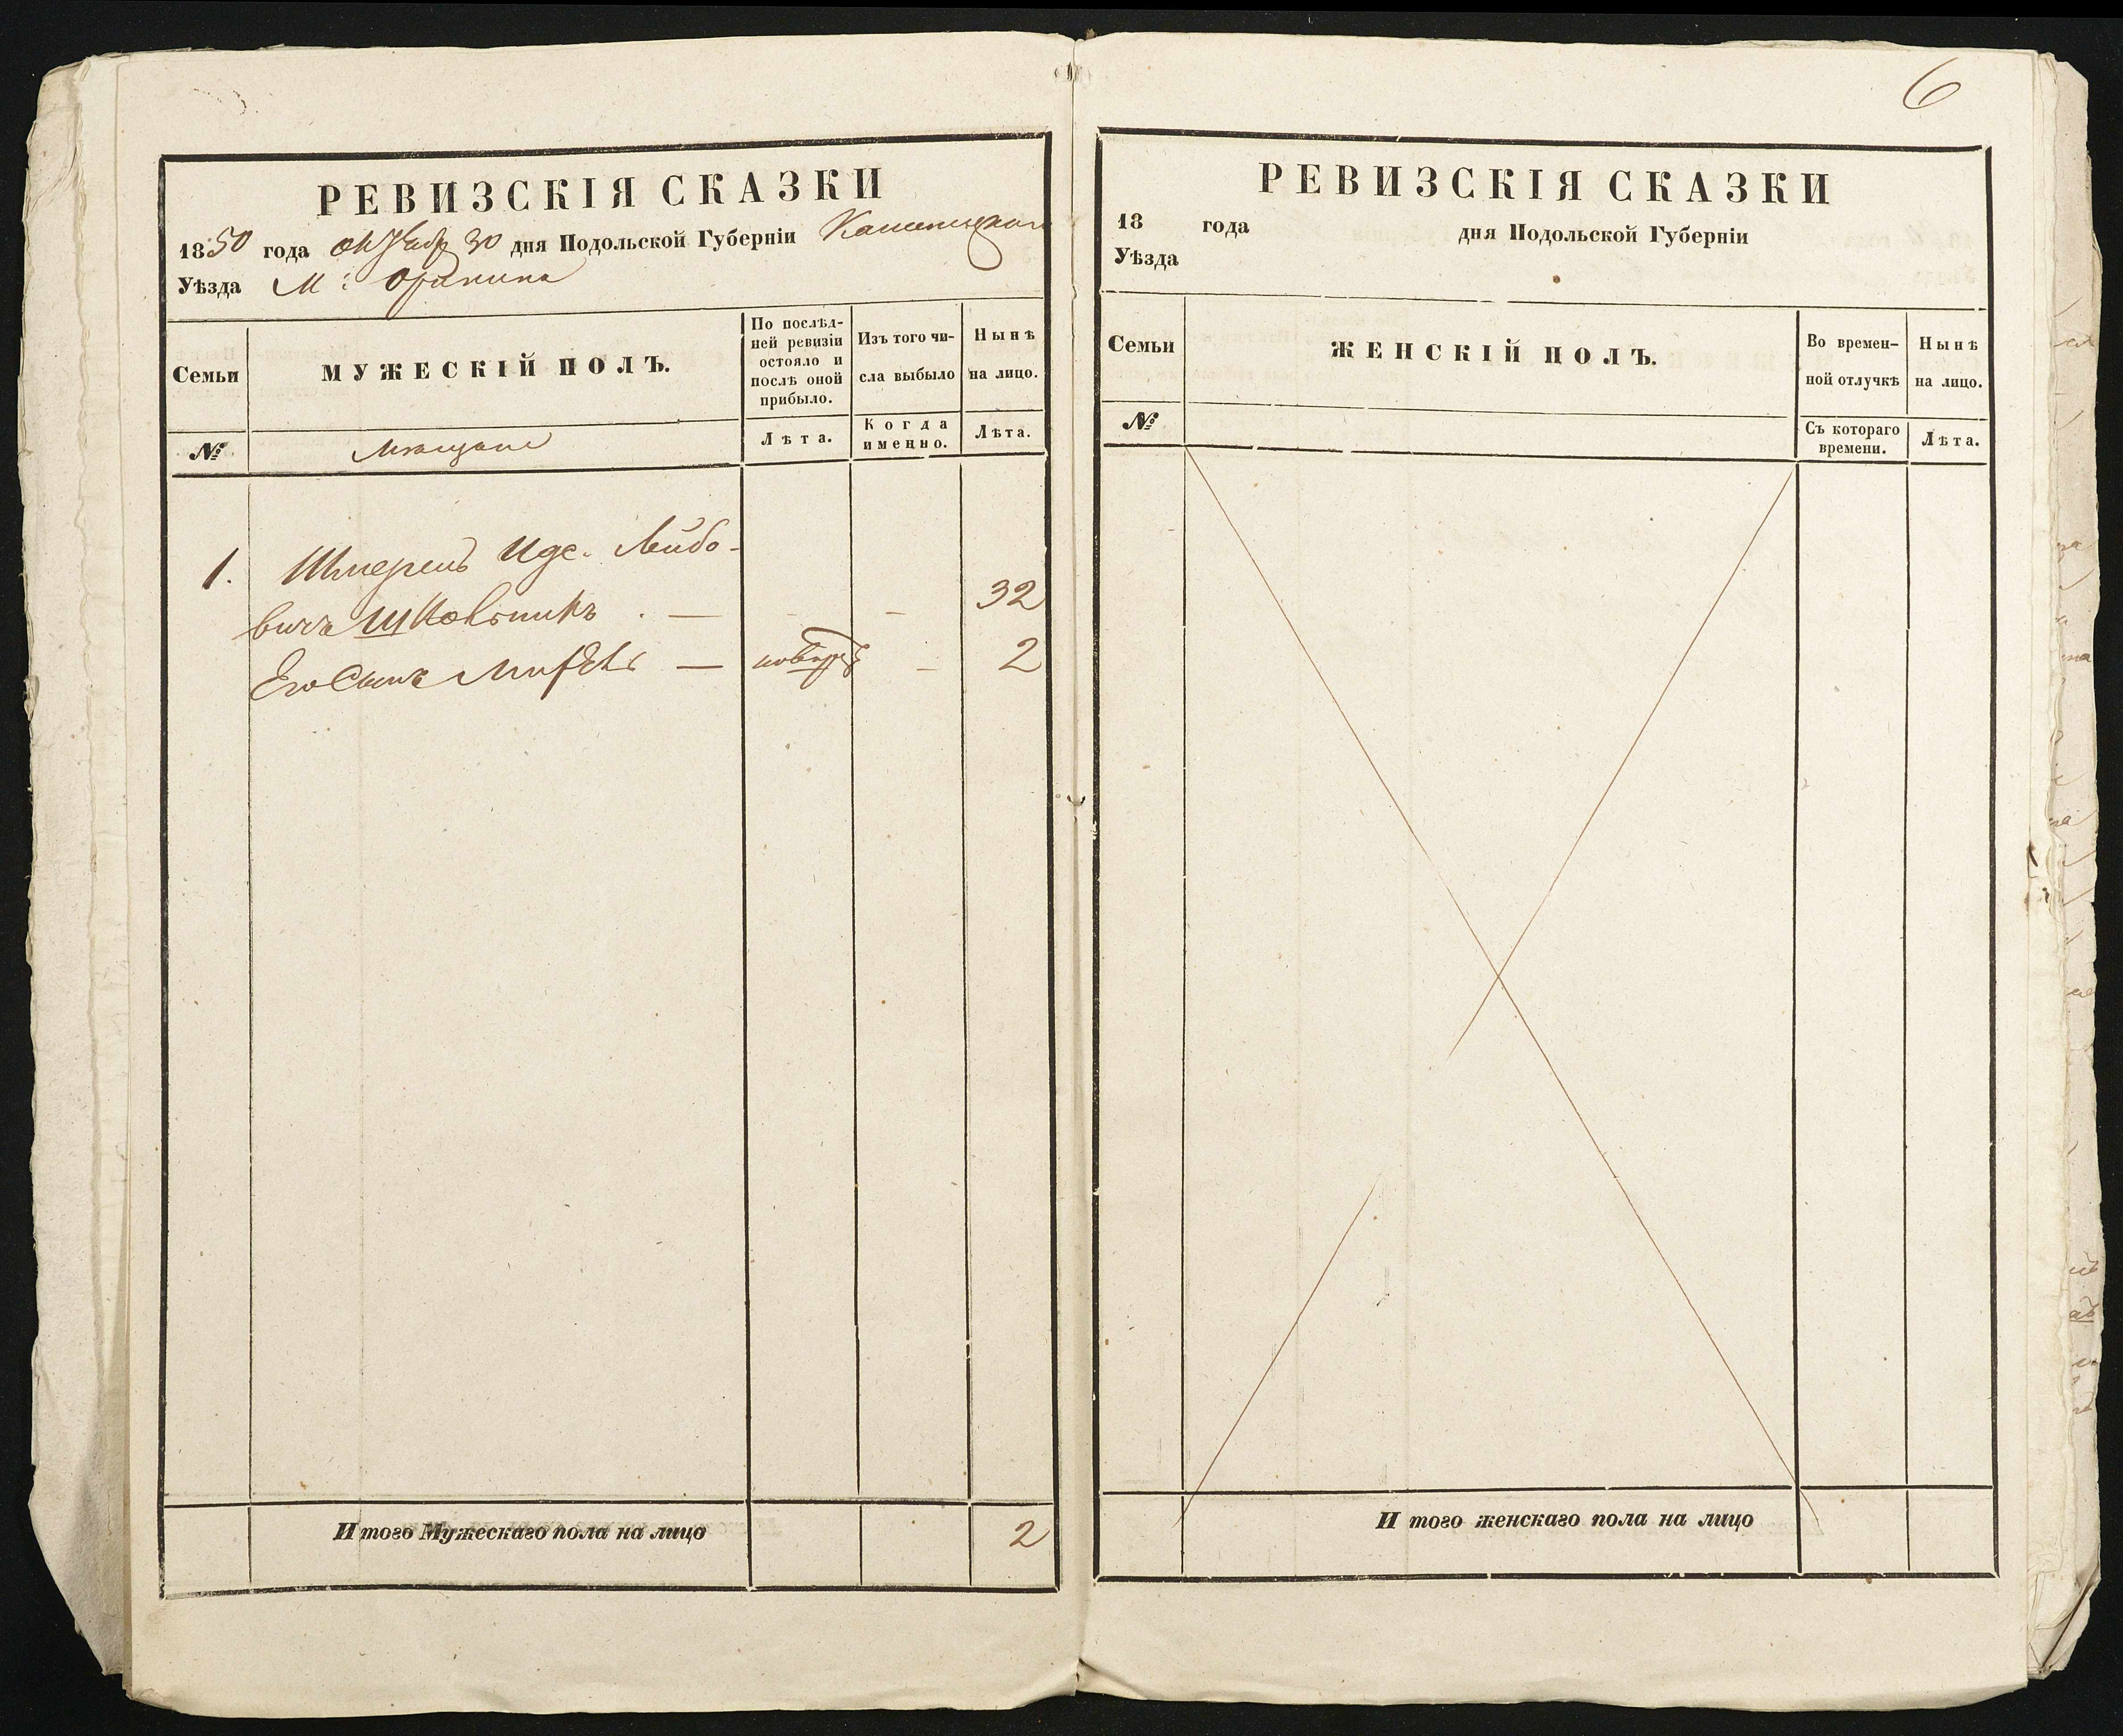 РЕВИЗСКІЯ СКАЗКИ
1850 года октября 30 дня Подольской Губерніи Каменецкаго
Уѣзда М: Оринина
Семьи
МУЖЕСКІЙ ПОЛЪ.
По послѣд-
ней ревизіи
остояло и
послѣ оной
прибыло.
Изъ того чи-
сла выбыло
Нынѣ
на лицо.
№
Мѣщане
Лѣта.
Когда
именно.
Лѣта.
1. Шмерель Иде. Лейбо-
вичъ Школьникъ . — - - 32
Его Сынъ — - 2
И того Мужескаго пола на лицо 2
6
РЕВИЗСКІЯ СКАЗКИ
18 года дня Подольской Губерніи
Уѣзда
Семьи
ЖЕНСКІЙ ПОЛЪ.
Во времен-
ной отлучкѣ
Нынѣ
на лицо.
№
Съ котораго
времени.
Лѣта.
И того женскаго пола на лицо